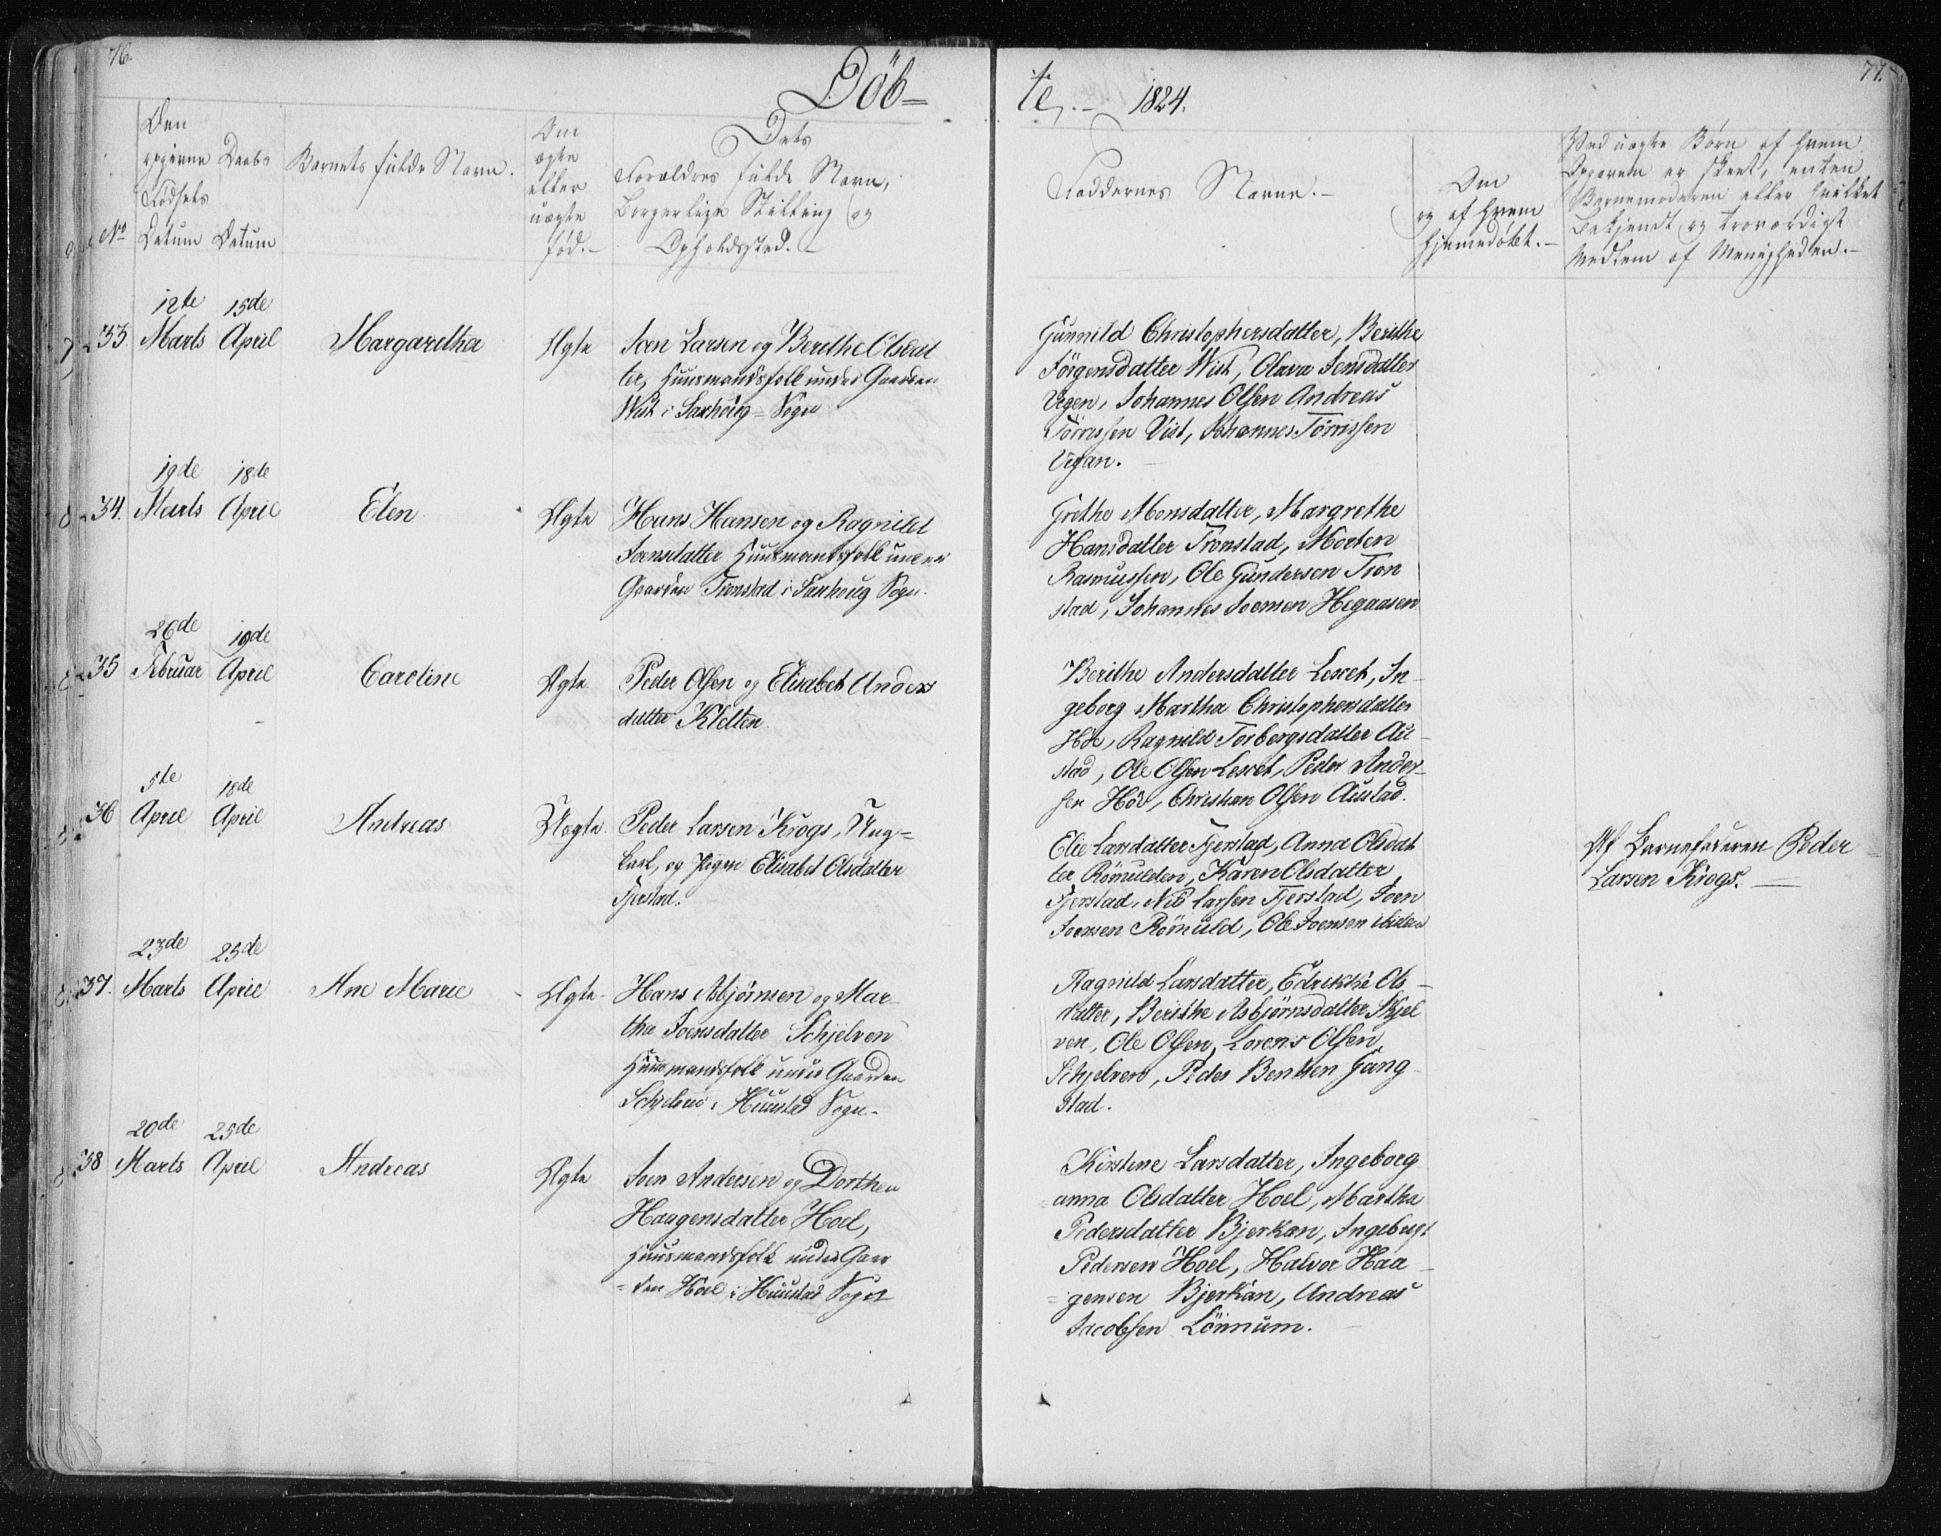 76.
77.
Döb-
te.- 1824.
No
Den opgivne Fødsels Datum
Daabs Datum
Barnets fulde Navn.
Om ægte eller uægte fød.-
Dets Forældres fulde Navn, Borgerlige Stilling og Opholdssted.-
Faddernes Navne.-
Om og af hvem hjemmedöbt.-
Ved uægte Børn af hvem Opgaven er skeet, enten Barnemoderen eller hvilket bekjendt og troværdigt Medlem af Menigheden.-
33.
12te Marts
15de April
Margaretha
Ægte
Joen Larsen og Berethe Olsdat
ter, Huusmandsfolk under Gaarden
Wist i Saxhoug-Sogn
Gunnild Christophersdatter, Berithe
Jörgensdatter Wist, Olava Jensdatter
Vegen, Johannes Olsen Andreas
Törrissen Vist, Johannes Törrissen
Vegan.
34.
19de Marts
18de April
Elen
Ægte
Hans Hansen og Ragnild
Joensdatter Huusmandsfolk under
Gaarden Tronstad i Saxhoug Sogn.
Grethe Monsdatter, Margrethe
Hansdatter Tronstad, Morten
Rasmussen, Ole Gundersen Tron
stad, Johannes Joensen Hegaasen
35
26de Februar
19de April
Caroline
Ægte
Peder Olsen og Elisabet Anders
datter Kletten.
Berithe Andersdatter Lereet, In-
geborg Martha Christophersdatter
Höe, Ragnild Torbergsdatter Au-
stad, Ole Olsen Lereet, Peder Ander-
sen Höe, Christian Olsen Austad.
36
5te April
18de April
Andreas
Uægte.
Peder Larsen Krogs, Ung-
karl, og Pigen Elisabet Olsdatter
Fjerstad.
Elie Larsdatter Fjerstad, Anna Olsdat
ter Römulden, Karen Olsdatter
Fjerstad, Nils Larssen Fjerstad, Joen
Joensen Römuld, Ole Joensen ibidem
Af Barnefaderen Peder
Larsen Krogs.
37.
23de Marts
25de April
Ane Marie
Ægte.
Hans Asbjörnsen og Mar-
tha Joensdatter Schjelven
Huusmandsfolk under Gaarden
Schjelven i Huustad Sogn.
Ragnild Larsdatter, Edrikke Ols-
datter, Berithe Asbjørnsdatter Skjel
ven, Ole Olsen, Lorens Olsen
Schjelven, Peder Bentsen Gang-
stad.
38
20de Marts
25de April
Andreas
Ægte
Joen Andersen og Dorthea
Haagensdatter Hoel,
Huusmandsfolk under Gaar
-den Hoel i Huustad Sogn
Kirstene Larsdatter, Ingeborg
anna Olsdatter Hoel, Martha
Pedersdatter Bjerkan, Ingebrigt
Pedersen Hoel, Halvor Haa-
gensen Bjerkan, Andreas
Jacobsen Lönnum.